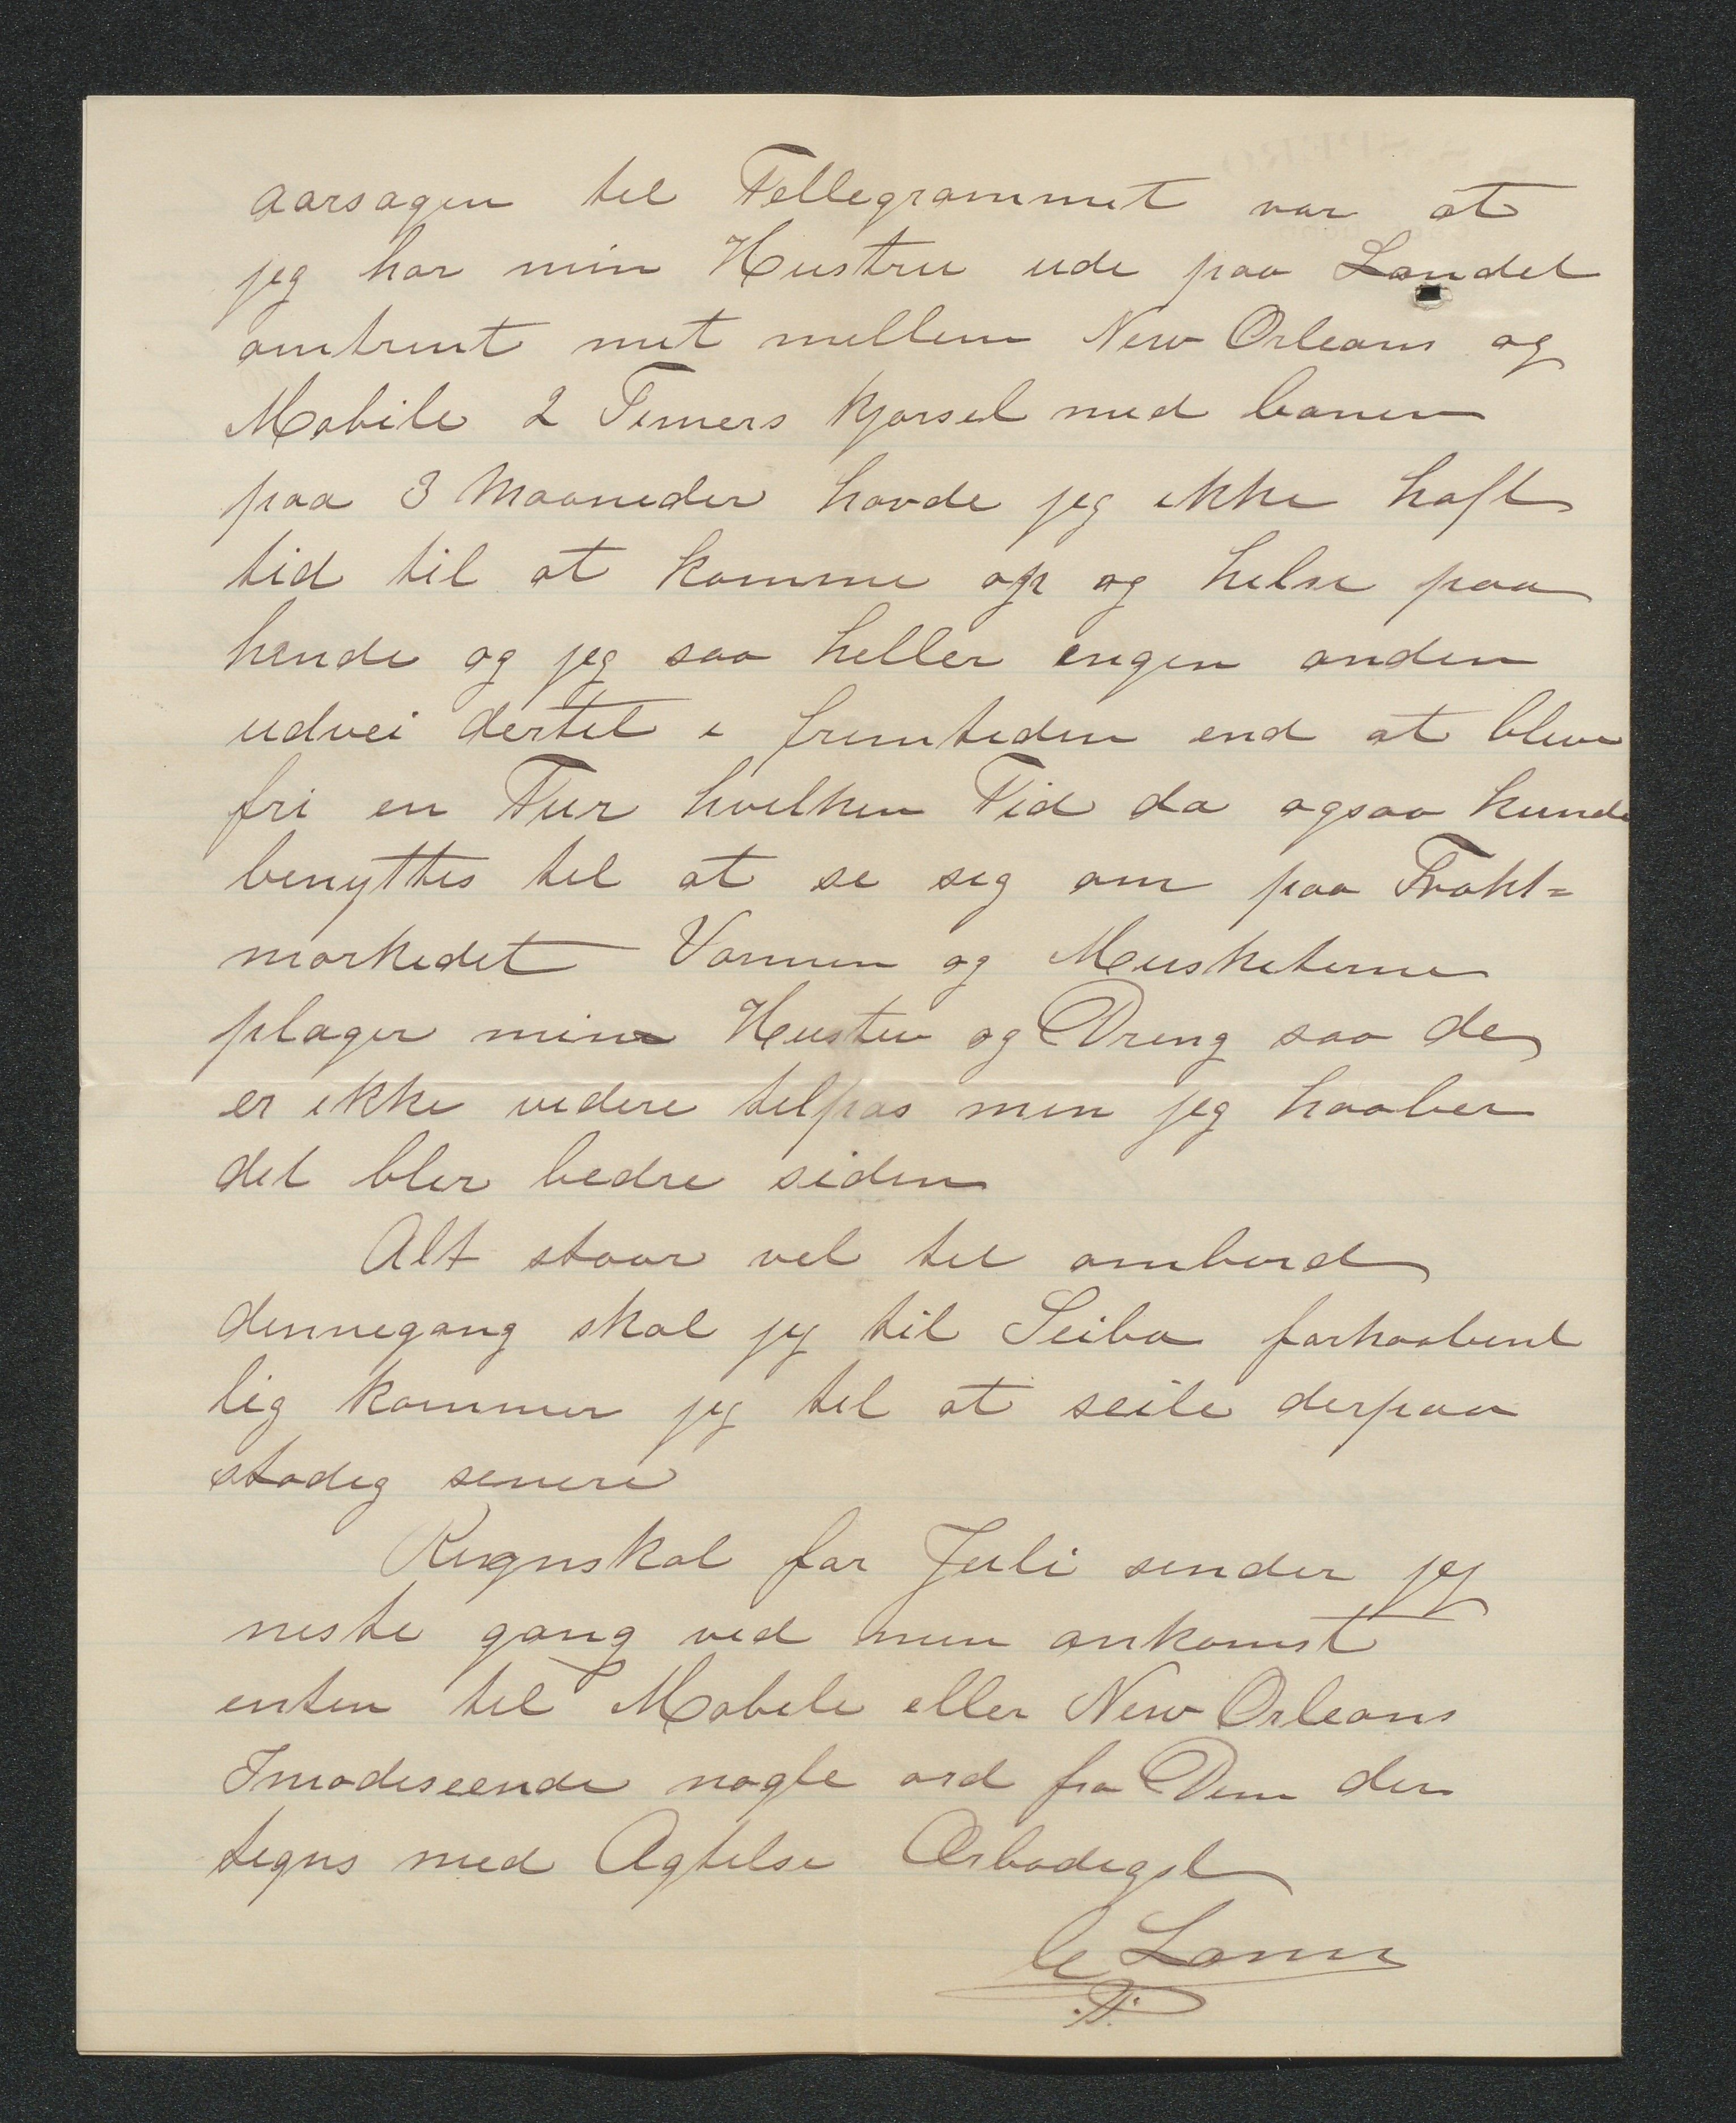 aarsagen til Tellegrammet var at
jeg har min Hustru ude paa Landet
omtrent mit mellem New Orleans og
Mobile 2 Timers kjørsel med banen
paa 3 Maaneder havde jeg ikke haft
tid til at komme op og helse paa
hende og jeg saa heller ingen anden
udvei dertil i fremtiden end at blive
fri en Tur hvilken Tid da ogsaa kunde
benyttes til at se sig om paa Frakt=
markedet Varmen og Muskiterne
plager min Hustru og Dreng saa de
er ikke videre tilpas men jeg haaber
det bler bedre siden
Alt staar vel til ombord
dennegang skal jeg til Seiba forhaabent
lig kommer jeg til at seile derpaa
stadig senere
Regnskab for Juli sender jeg
neste gang ved min ankomst
enten til Mobile eller New Orleans
Imødeseende nogle ord fra Dem der
tegns med Agtelse Ærbødigst